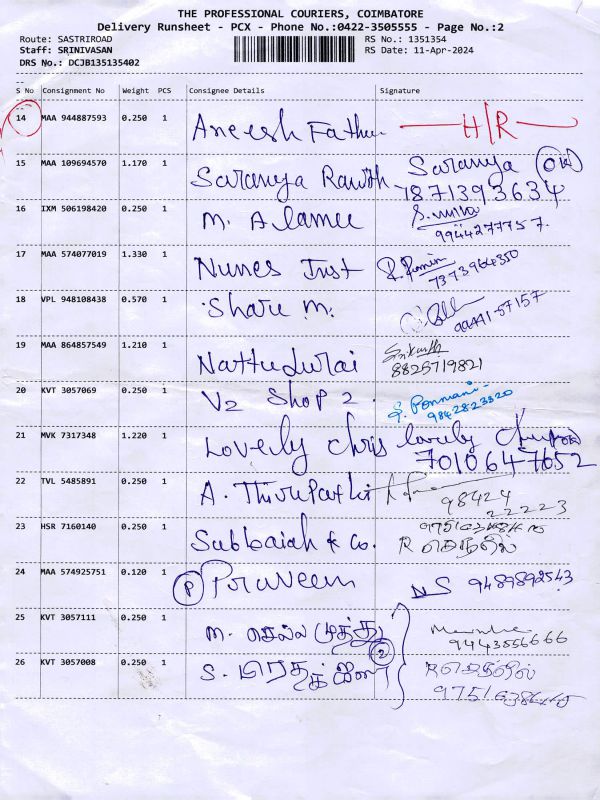 THE PROFESSIONAL COURIERS, COIMBATORE
Delivery Runsheet - PCX - Phone No.:0422-3505555 - Page No.:2
Route: SASTRIROAD RS No.: 1351354
Staff: SRINIVASAN RS Date: 11-Apr-2024
DRS No.: DCJB135135402
S No Consignment No Weight PCS Consignee Details Signature
14 MAA 944887593 0.250 1 Aneesh Fathu H/R
15 MAA 109694570 1.170 1 Saranya Ranth Saranya OK
7871393634
16 IXM 506198420 0.250 1 M. Alamee
9944277757.
17 MAA 574077019 1.330 1 Nunes Trust
7373964350
18 VPL 948108438 0.570 1 Sharu M.
19 MAA 864857549 1.210 1 Nattudurai Srikanth
8825719821
20 KVT 3057069 0.250 1 V2 Shop 2 S. Ponmani
9842823320
21 MVK 7317348 1.220 1 Lovely Chris lovely
7010647652
22 TVL 5485891 0.250 1 A. Thirupathi
98424
22223
23 HSR 7160140 0.250 1 Subbaiah & Co.
R செந்தில்
24 MAA 574925751 0.120 1 P Praveen NS 9489892543
25 KVT 3057111 0.250 1 M. செல்ல முத்து
9443556666
26 KVT 3057008 0.250 1 S. 2 R செந்தில்